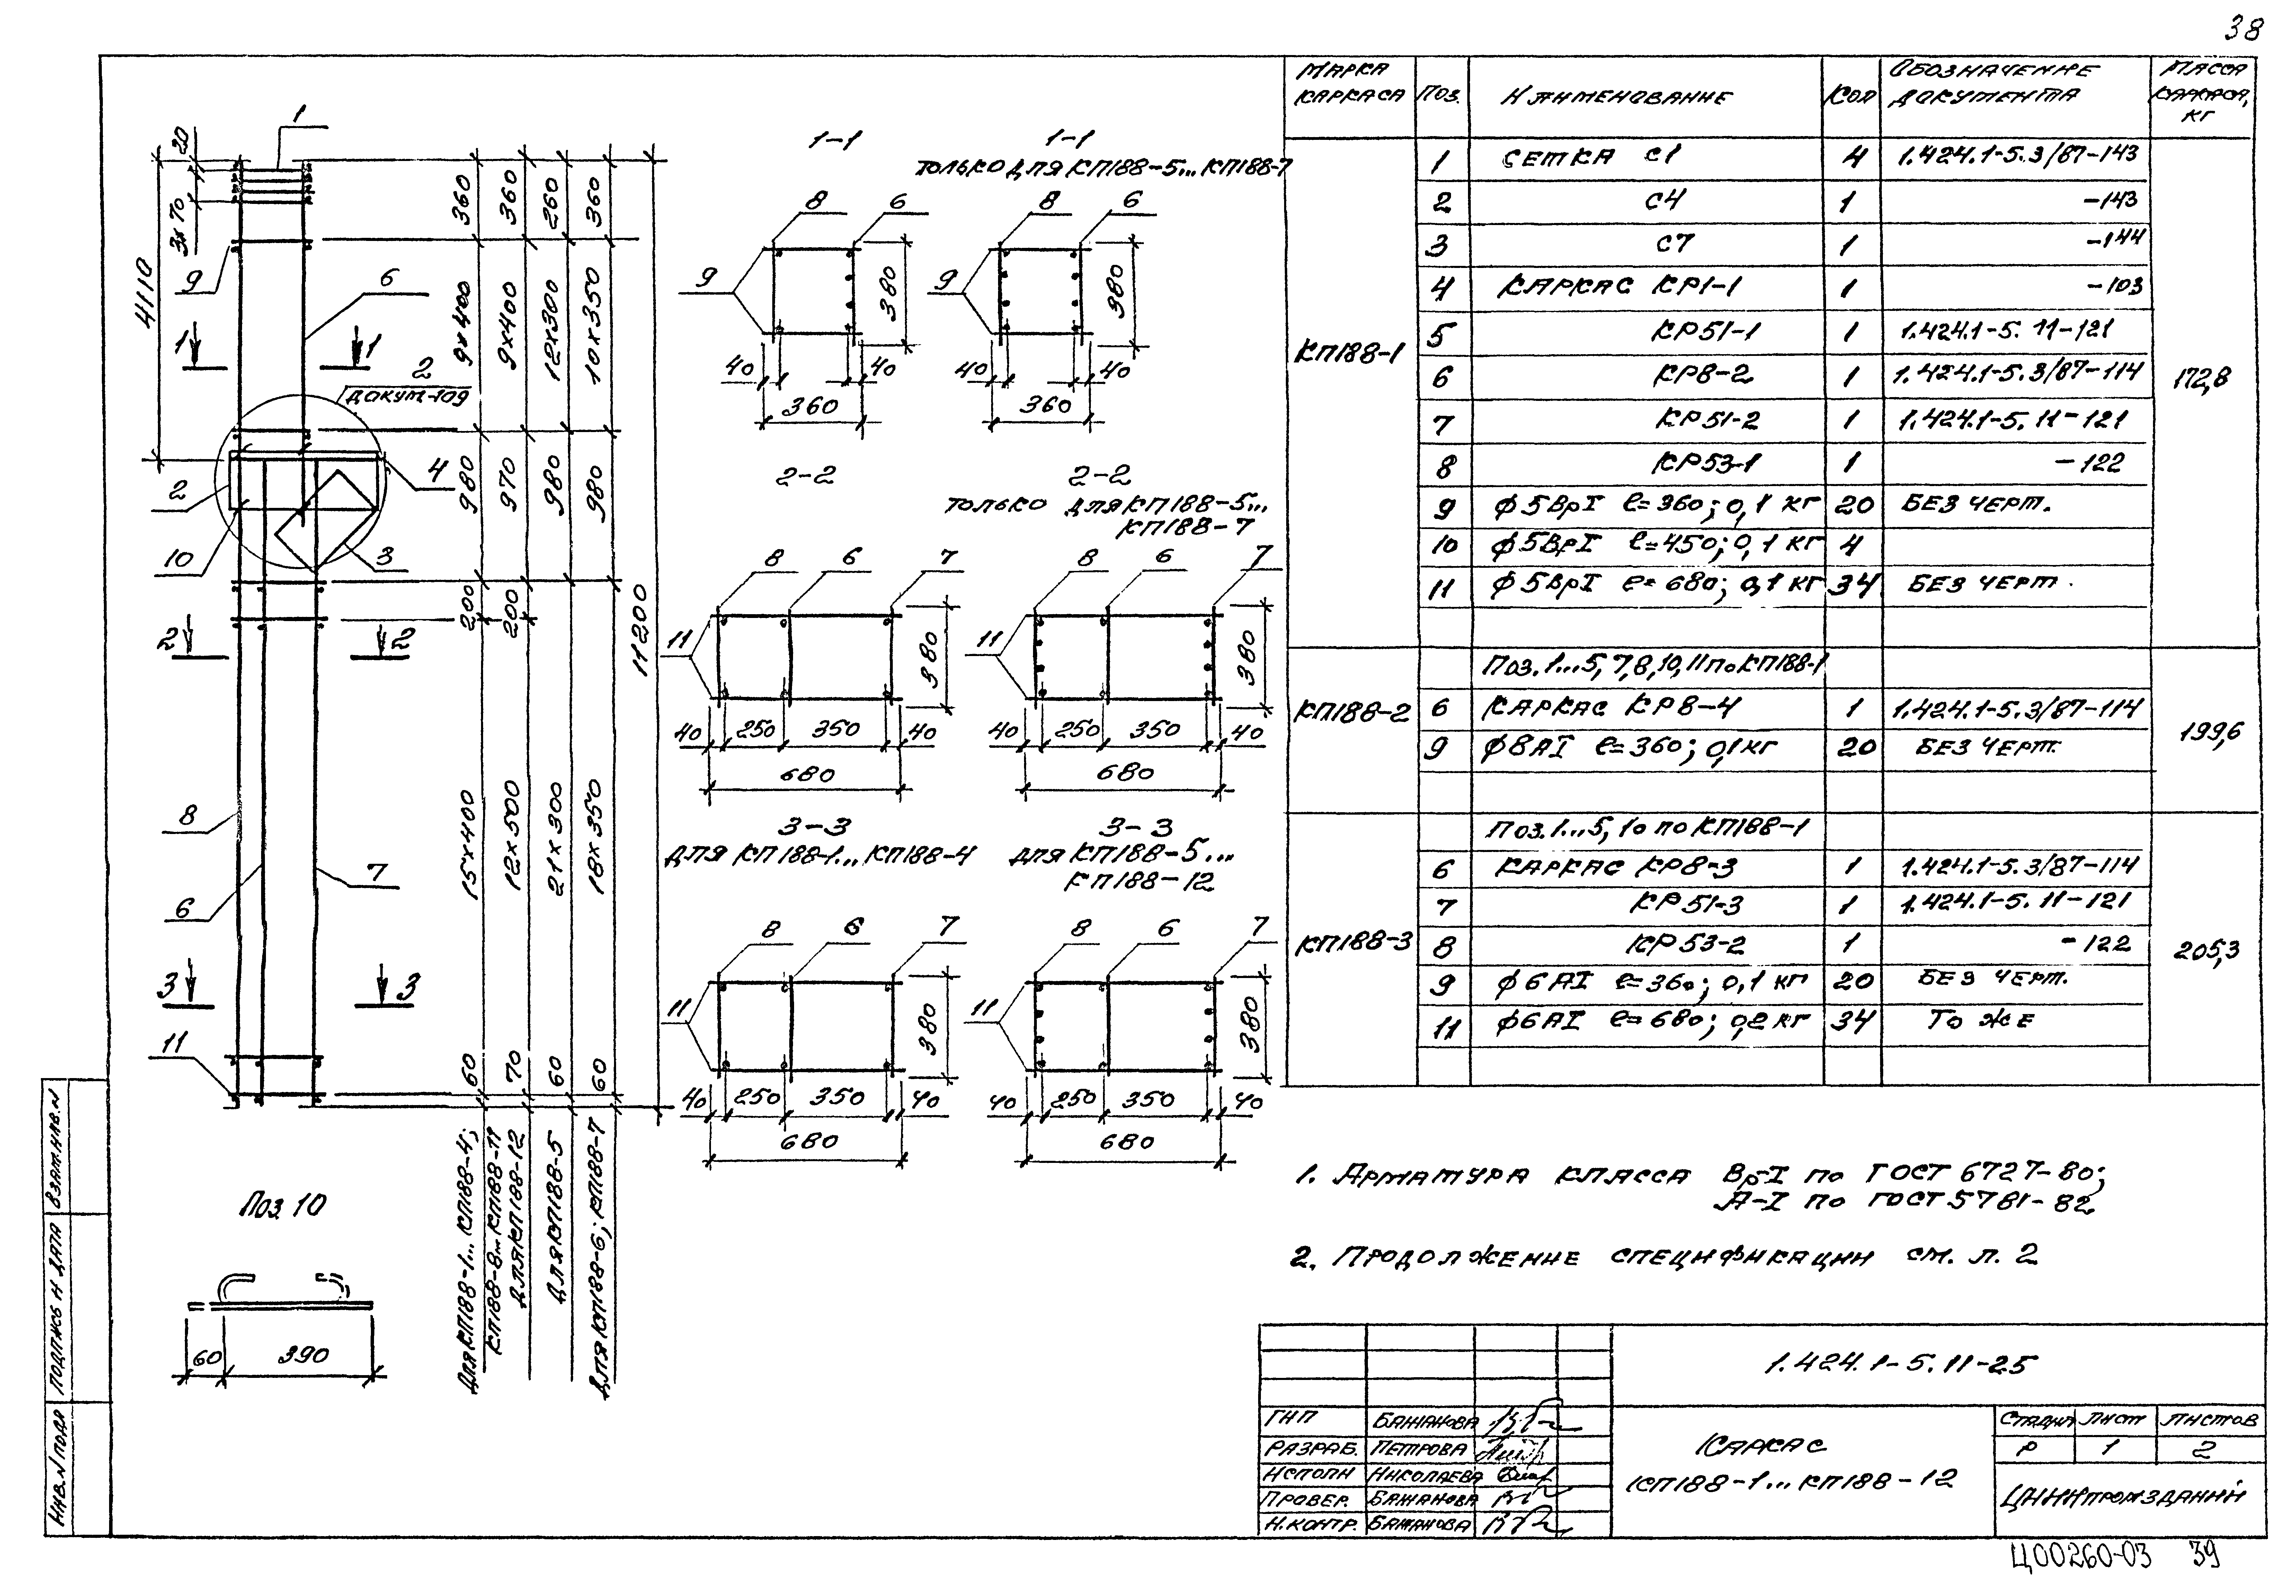 38
1
20
3х70
4110
9
6
1 1
2
ДОКУМ-109
4
2
10
3
2 2
8
6
7
3 3
11
360 360 260 360
9х400 9х400 12х300 10х350
980 970 980 980
200 200
15х400 12х500 21х300 18х350
60 70 60 60
11200
ДЛЯ КП188-1...КП188-4;
КП188-8...КП188-11
ДЛЯ КП188-12
ДЛЯ КП188-5
ДЛЯ КП188-6; КП188-7
Поз. 10
60 390
1-1
8 6
9
380
40 40
360
1-1
ТОЛЬКО ДЛЯ КП188-5...КП188-7
8 6
9
380
40 40
360
2-2
8 6 7
11
380
40 250 350 40
680
2-2
ТОЛЬКО ДЛЯ КП188-5...
КП188-7
8 6 7
11
380
40 250 350 40
680
3-3
ДЛЯ КП188-1...КП188-4
8 6 7
11
380
40 250 350 40
680
3-3
ДЛЯ КП188-5...
КП188-12
8 6 7
11
380
40 250 350 40
680
МАРКА КАРКАСА ПОЗ. НАИМЕНОВАНИЕ КОЛ ОБОЗНАЧЕНИЕ ДОКУМЕНТА МАССА КАРКАСА, КГ
КП188-1 172,8
1 СЕТКА С1 4 1.424.1-5.3/87-143
2 С4 1 -143
3 С7 1 -144
4 КАРКАС КР1-1 1 -103
5 КР51-1 1 1.424.1-5. 11-121
6 КР8-2 1 1.424.1-5.3/87-114
7 КР51-2 1 1.424.1-5. 11-121
8 КР53-1 1 -122
9 ф5ВрI ℓ=360; 0,1 кг 20 БЕЗ ЧЕРТ.
10 ф5ВрI ℓ=450; 0,1 кг 4
11 ф5ВрI ℓ=680; 0,1 кг 34 БЕЗ ЧЕРТ.
КП188-2 199,6
Поз. 1...5, 7, 8, 10, 11 по КП188-1
6 КАРКАС КР8-4 1 1.424.1-5.3/87-114
9 ф8АI ℓ=360; 0,1 кг 20 БЕЗ ЧЕРТ.
КП188-3 205,3
Поз. 1...5, 10 по КП188-1
6 КАРКАС КР8-3 1 1.424.1-5.3/87-114
7 КР51-3 1 1.424.1-5. 11-121
8 КР53-2 1 -122
9 ф6АI ℓ=360; 0,1 кг 20 БЕЗ ЧЕРТ.
11 ф6АI ℓ=680; 0,2 кг 34 ТО ЖЕ
1. АРМАТУРА КЛАССА Вр-I по ГОСТ 6727-80;
А-I по ГОСТ 5781-82
2. ПРОДОЛЖЕНИЕ СПЕЦИФИКАЦИИ см. л. 2
1.424.1-5.11-25
ГИП БАЖАНОВА
РАЗРАБ. ПЕТРОВА
ИСПОЛН НИКОЛАЕВА
ПРОВЕР. БАЖАНОВА
Н.КОНТР. БАЖАНОВА
КАРКАС
КП188-1...КП188-12
СТАДИЯ ЛИСТ ЛИСТОВ
Р 1 2
ЦНИИПРОМЗДАНИЙ
ИНВ.N ПОДЛ ПОДПИСЬ И ДАТА ВЗАМ.ИНВ.N
Ц00260-03 39